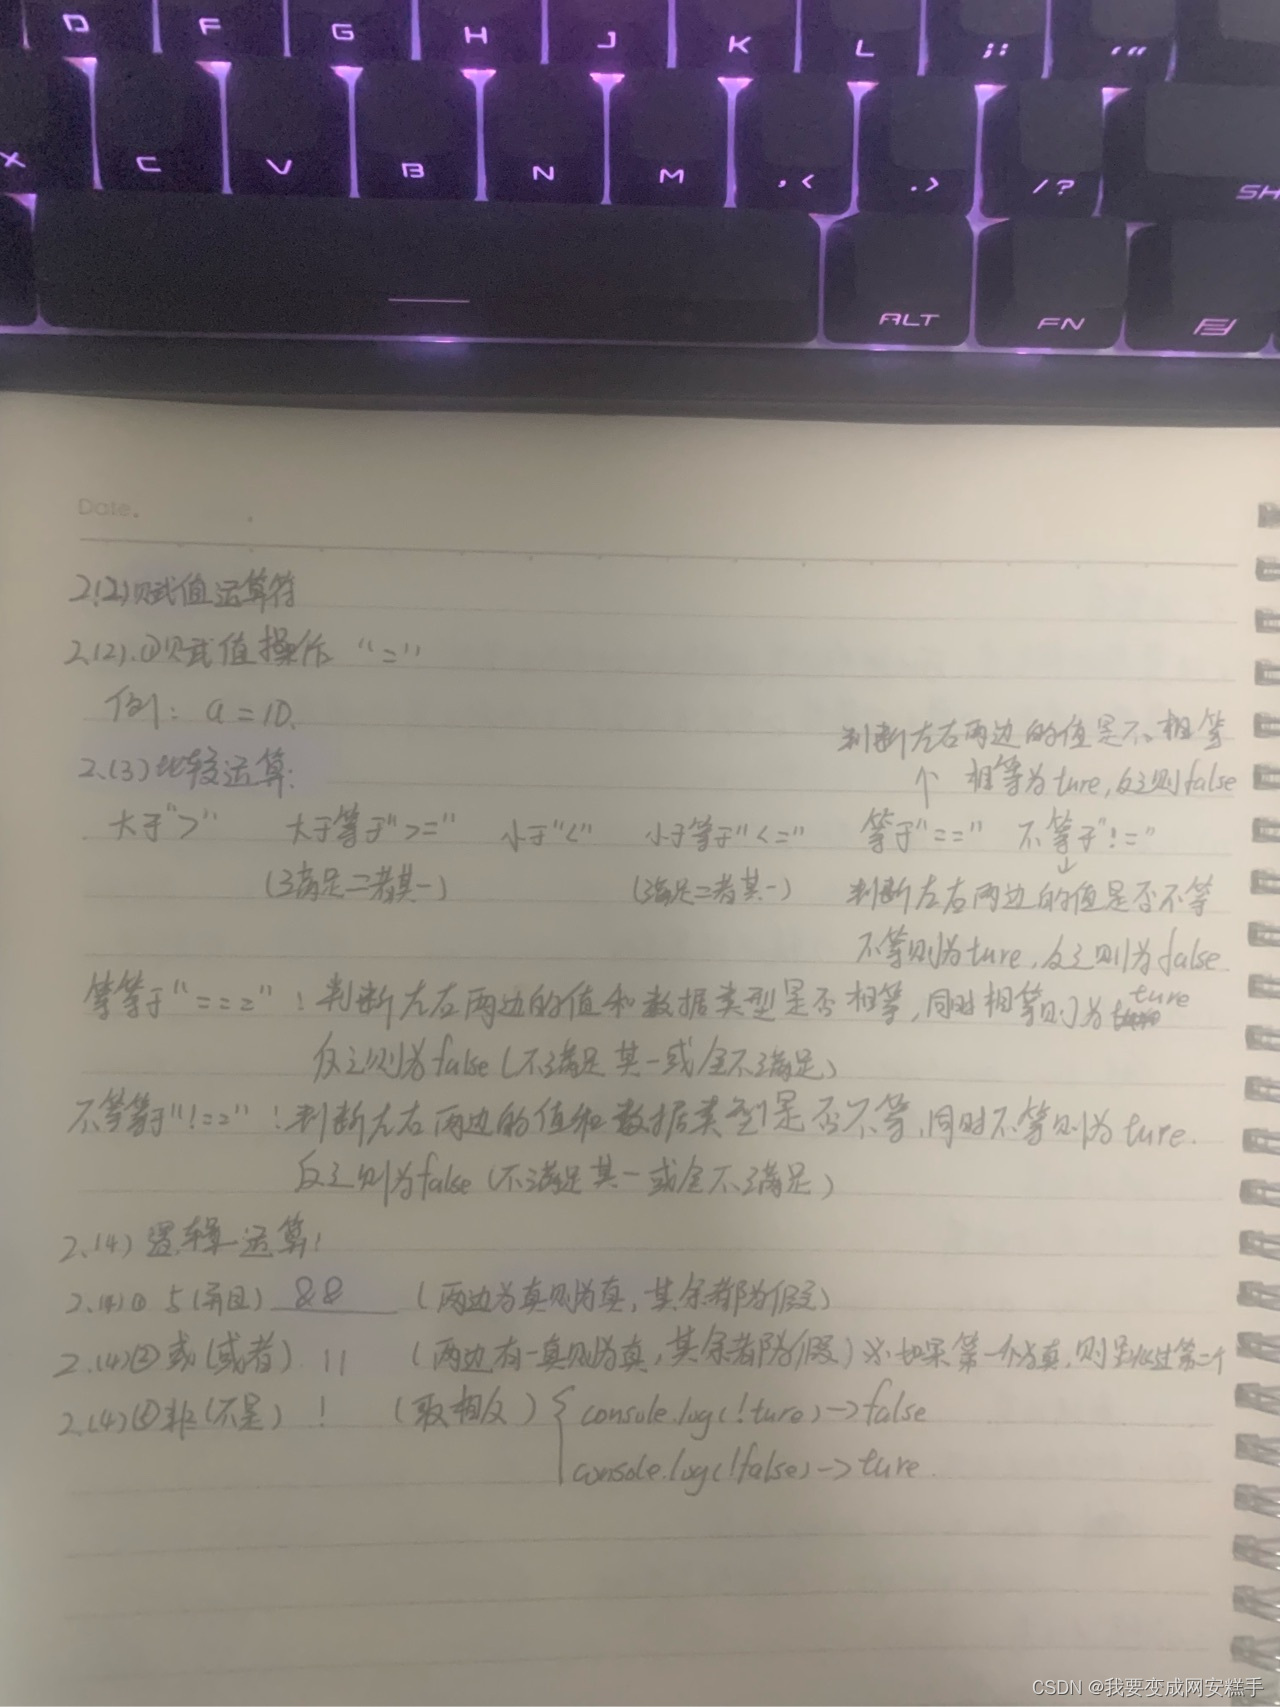 D F G H J K L ;: '"
X C V B N M ,< .> /? SH
ALT FN
Date.
2.(2)赋值运算符
2.(2).①赋值操作 "="
例: a=10.
2.(3)比较运算:
判断左右两边的值是不相等
↑ 相等为ture,反之则false
大于">" 大于等于">=" 小于"<" 小于等于"<=" 等于"==" 不等于"!="
(满足二者其一) (满足二者其一) ↓
判断左右两边的值是否不等
不等则为ture,反之则为false.
等等于"===":判断左右两边的值和数据类型是否相等,同时相等则为ture
反之则为false(不满足其一或全不满足)
不等等于"!==":判断左右两边的值和数据类型是否不等,同时不等则为ture.
反之则为false(不满足其一或全不满足)
2.(4)逻辑运算:
2.(4)① 与(并且) && (两边为真则为真,其余都为假)
2.(4)②或(或者) || (两边有一真则为真,其余都为假)※如果第一个为真,则 过第二个
2.(4) 非(不是) ! (取相反) { console.log(!ture)->false
console.log(!false)->ture.
CSDN @我要变成网安糕手